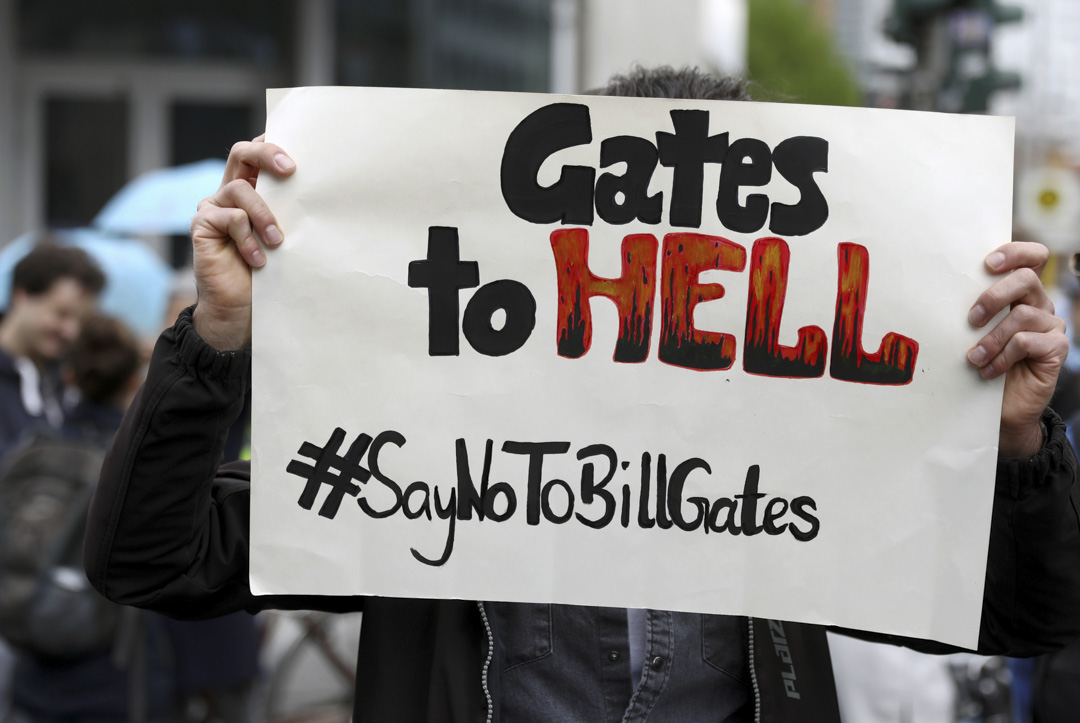 Gates
to HELL
#SayNoToBillGates